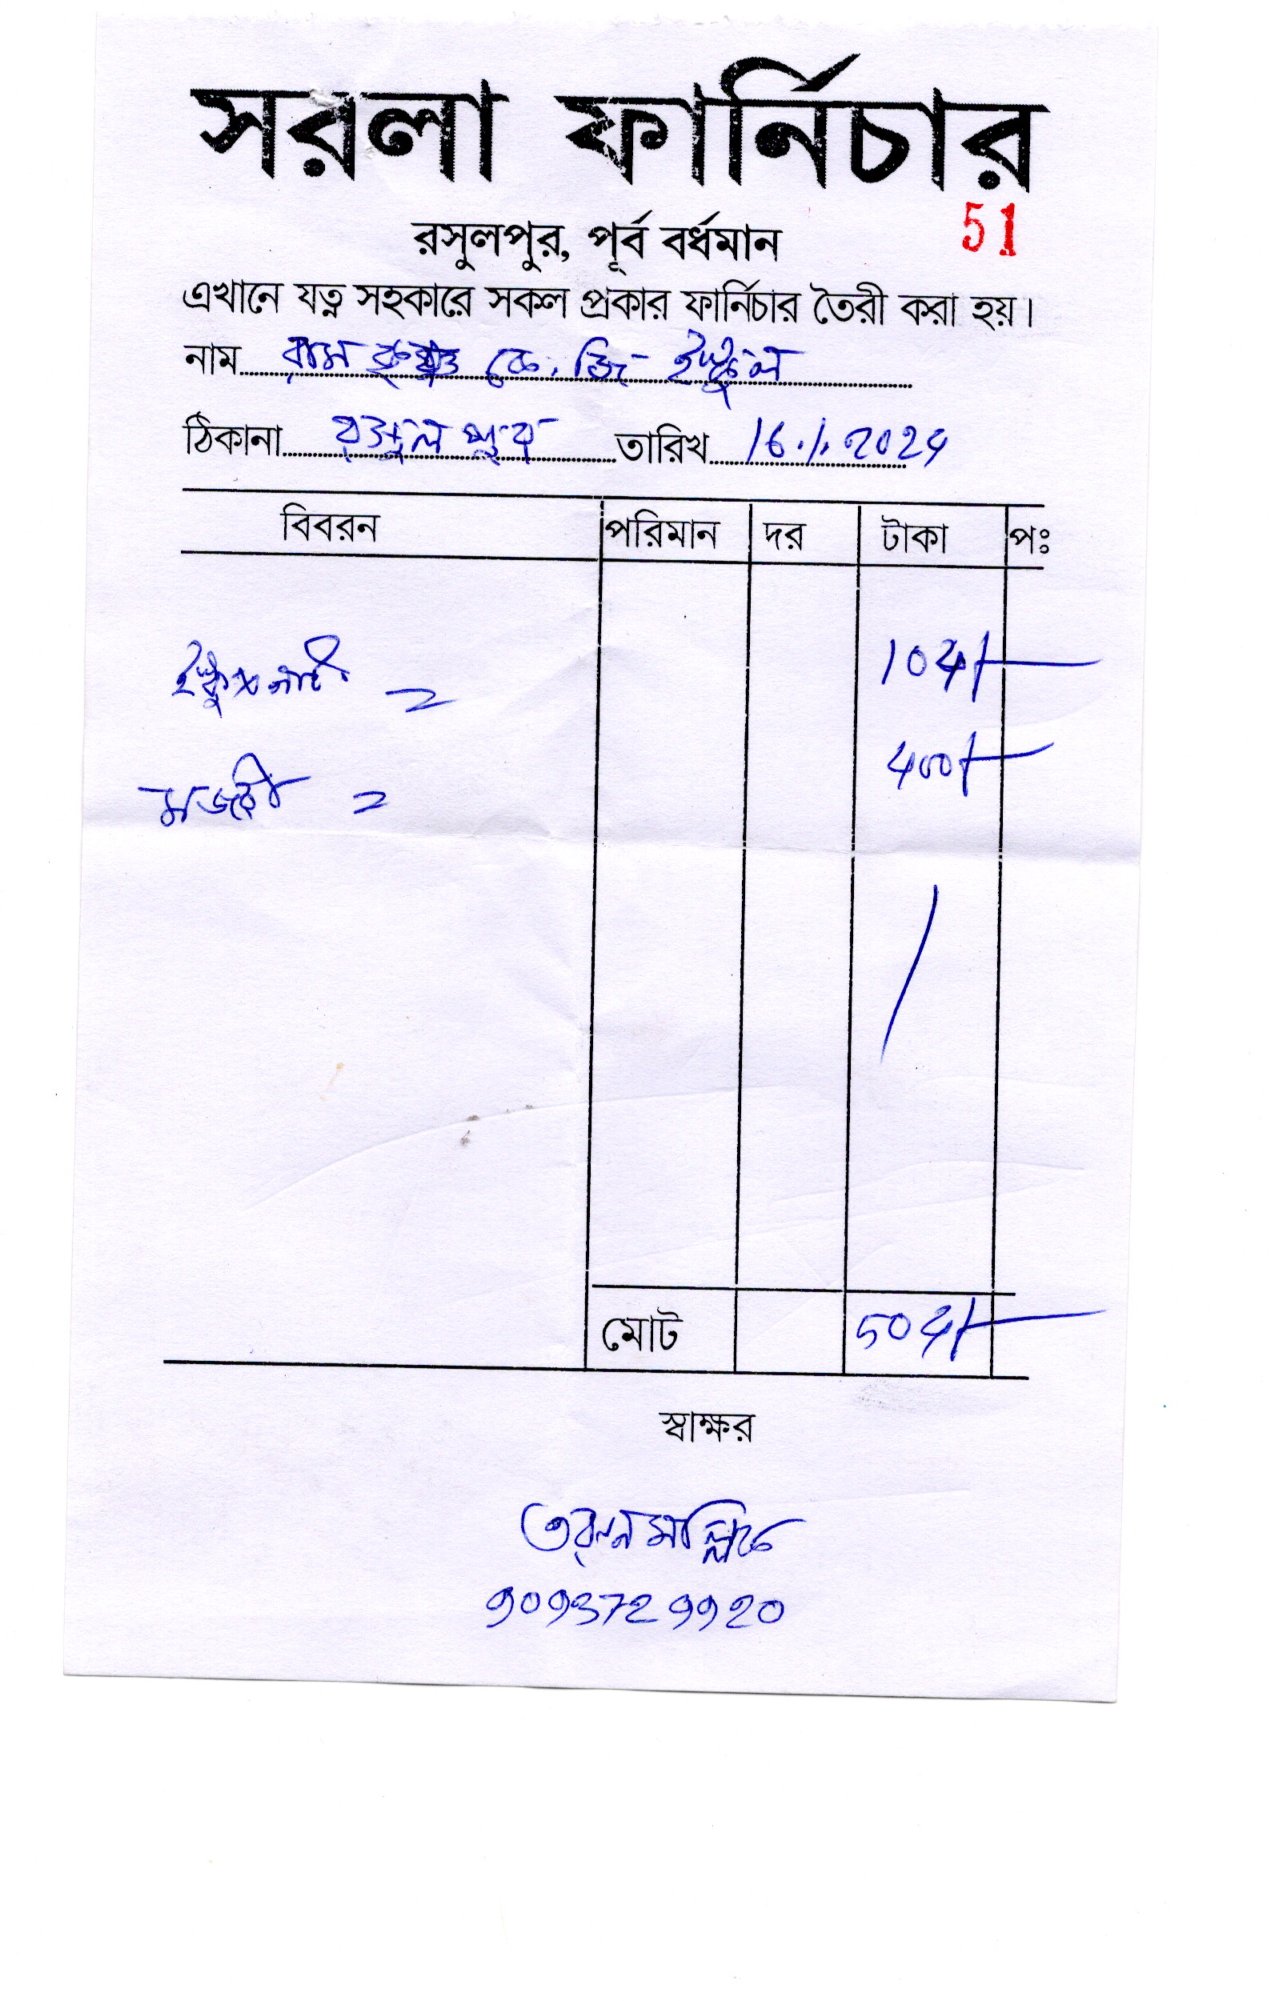 সরলা ফার্নিচার
রসুলপুর, পূর্ব বর্ধমান 51
এখানে যত্ন সহকারে সকল প্রকার ফার্নিচার তৈরী করা হয়।
নাম রাম কৃষ্ণ কে. জি ইস্কুল
ঠিকানা রসুলপুর তারিখ 16.1.2024
বিবরন পরিমান দর টাকা পঃ
= 104/-
মজুরী = 400/-
মোট 504/-
স্বাক্ষর
তরুন মল্লিক
9093729920